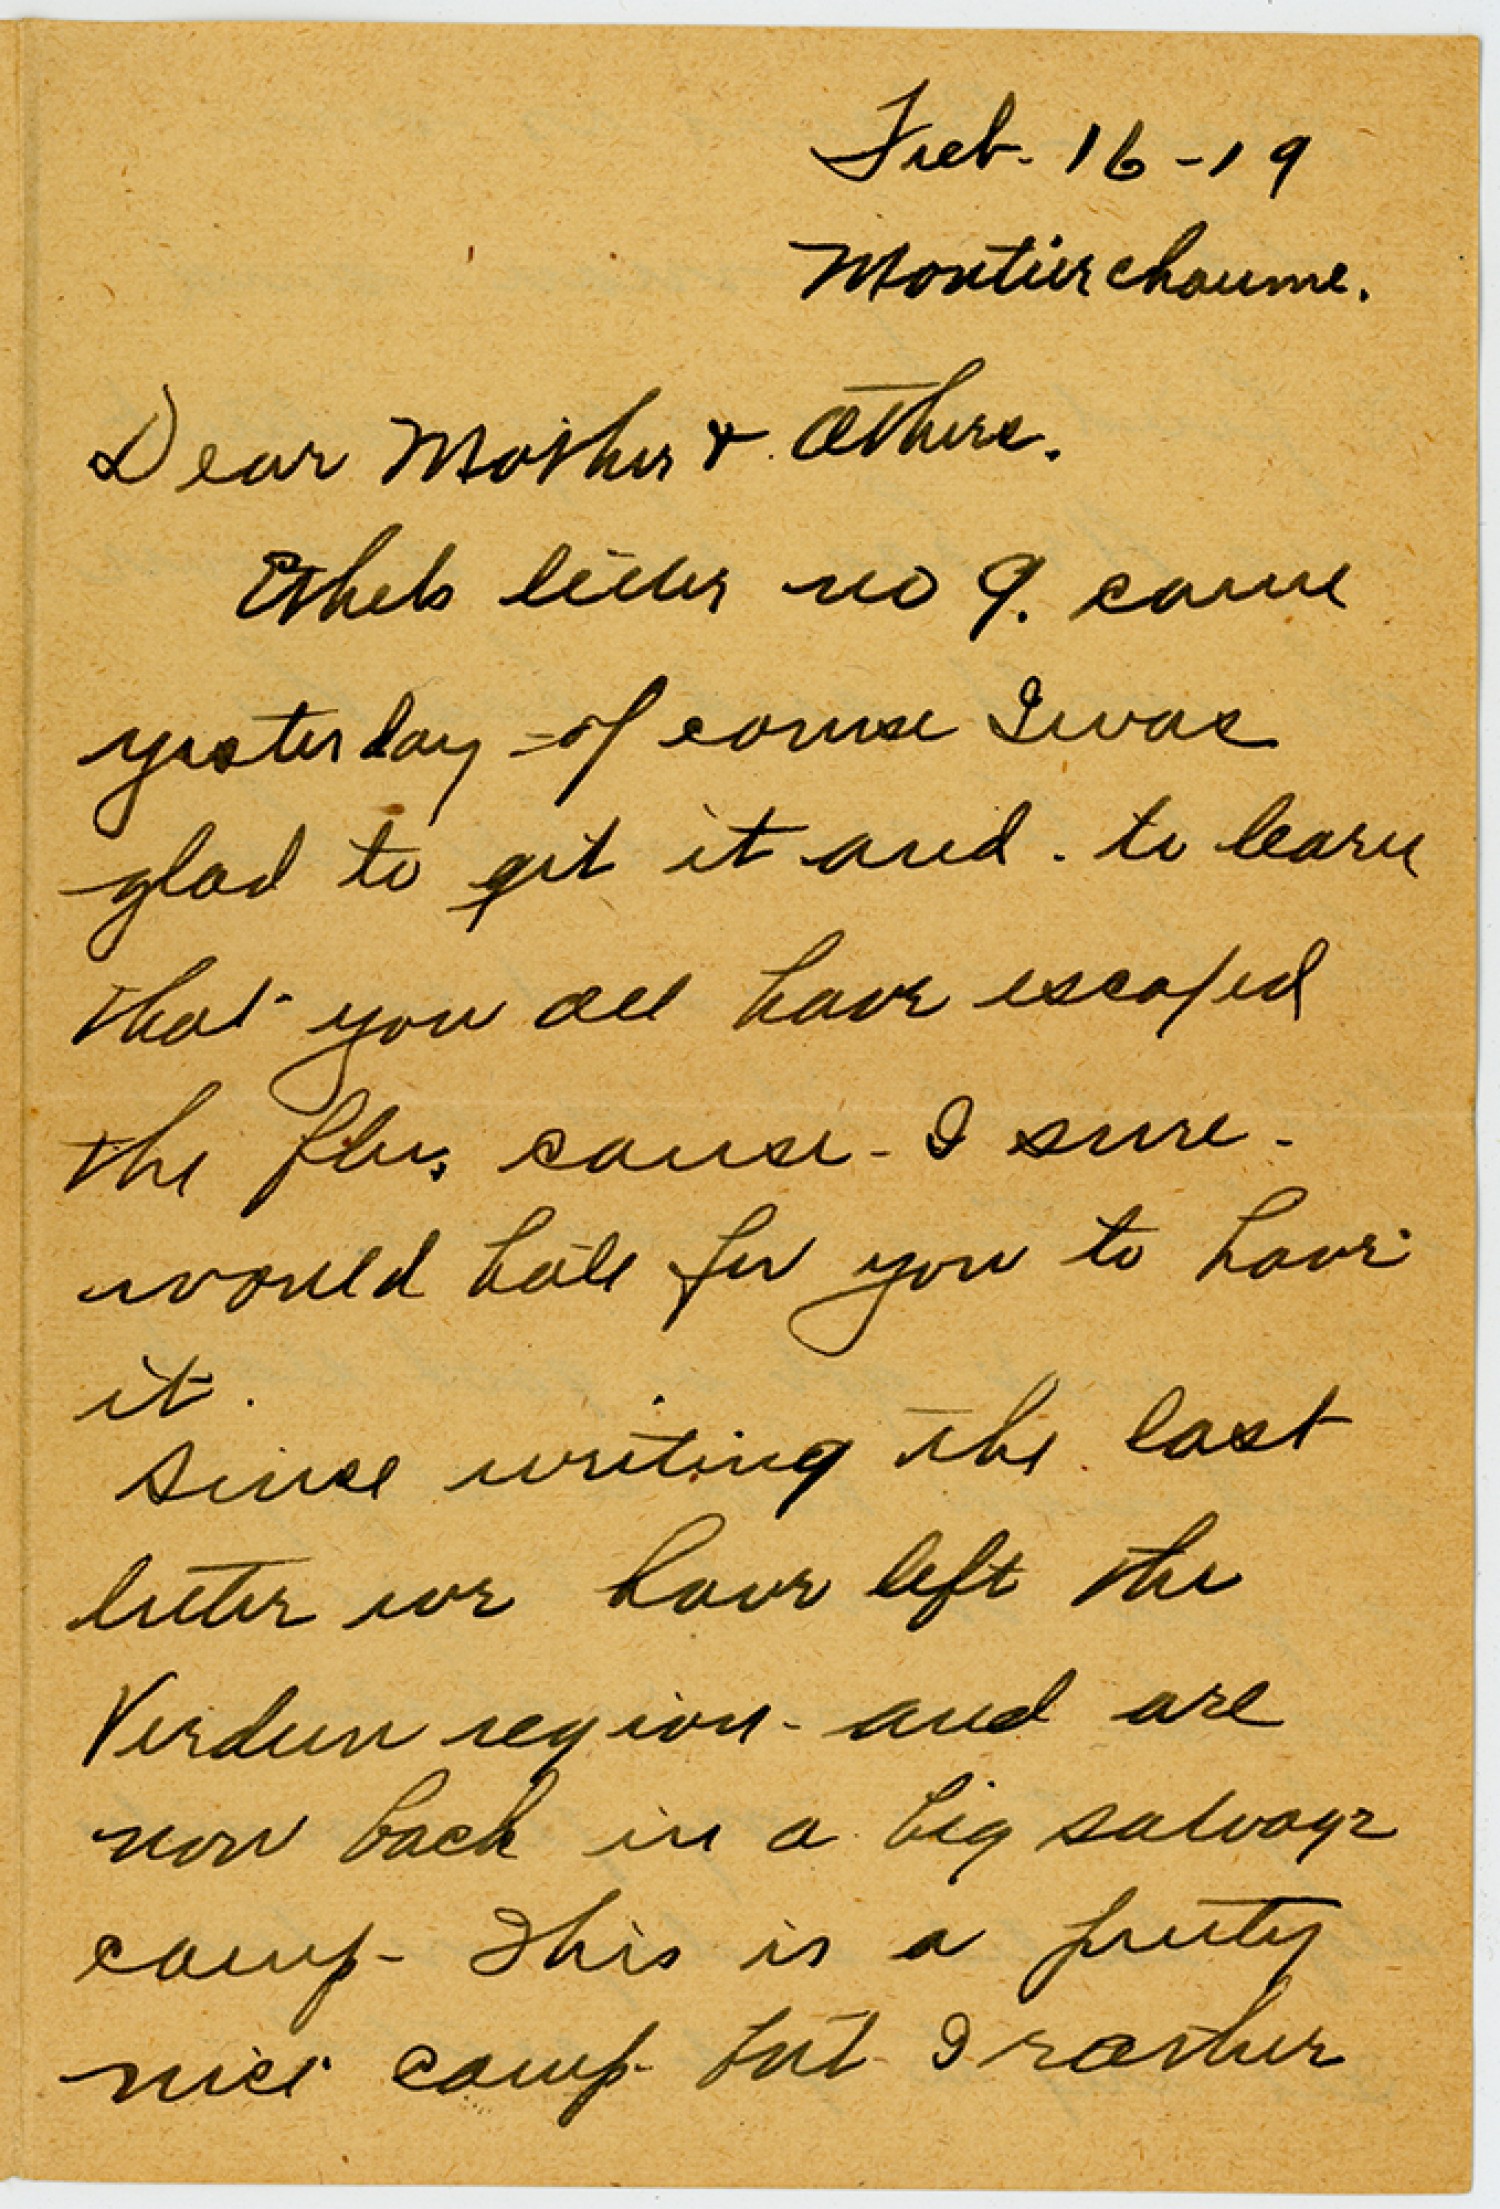 Feb- 16-19
Montierchaume.
Dear Mother & Others.
Ethels letter no 9. came
yesterday - of course I was
glad to get it and. to learn
that you all have escaped
the flu, cause - I sure -
would hate for you to have
it.
Since writing the last
letter we have left the
Verdun region - and are
now back in a big salvage
camp - This is a pretty
nice camp but I rather